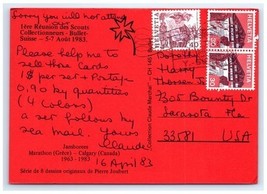 Sorry you will not attend
our
1ère Réunion des Scouts
Collectionneurs - Bulle/
Suisse - 5-7 Août 1983.
Please help me to
sell these cards
1$ per set + Postage
0.90 by quantities
(4 colors)
a set follows by
sea mail. Yours
Claude
Jamborees
Marathon (Grèce) - Calgary (Canada)
1963 - 1983
16 April 83
Série de 8 dessins originaux de Pierre Joubert
HELVETIA
HELVETIA
HELVETIA
Harry
805 Bounty Dr
Sarasota Fla
33581 USA